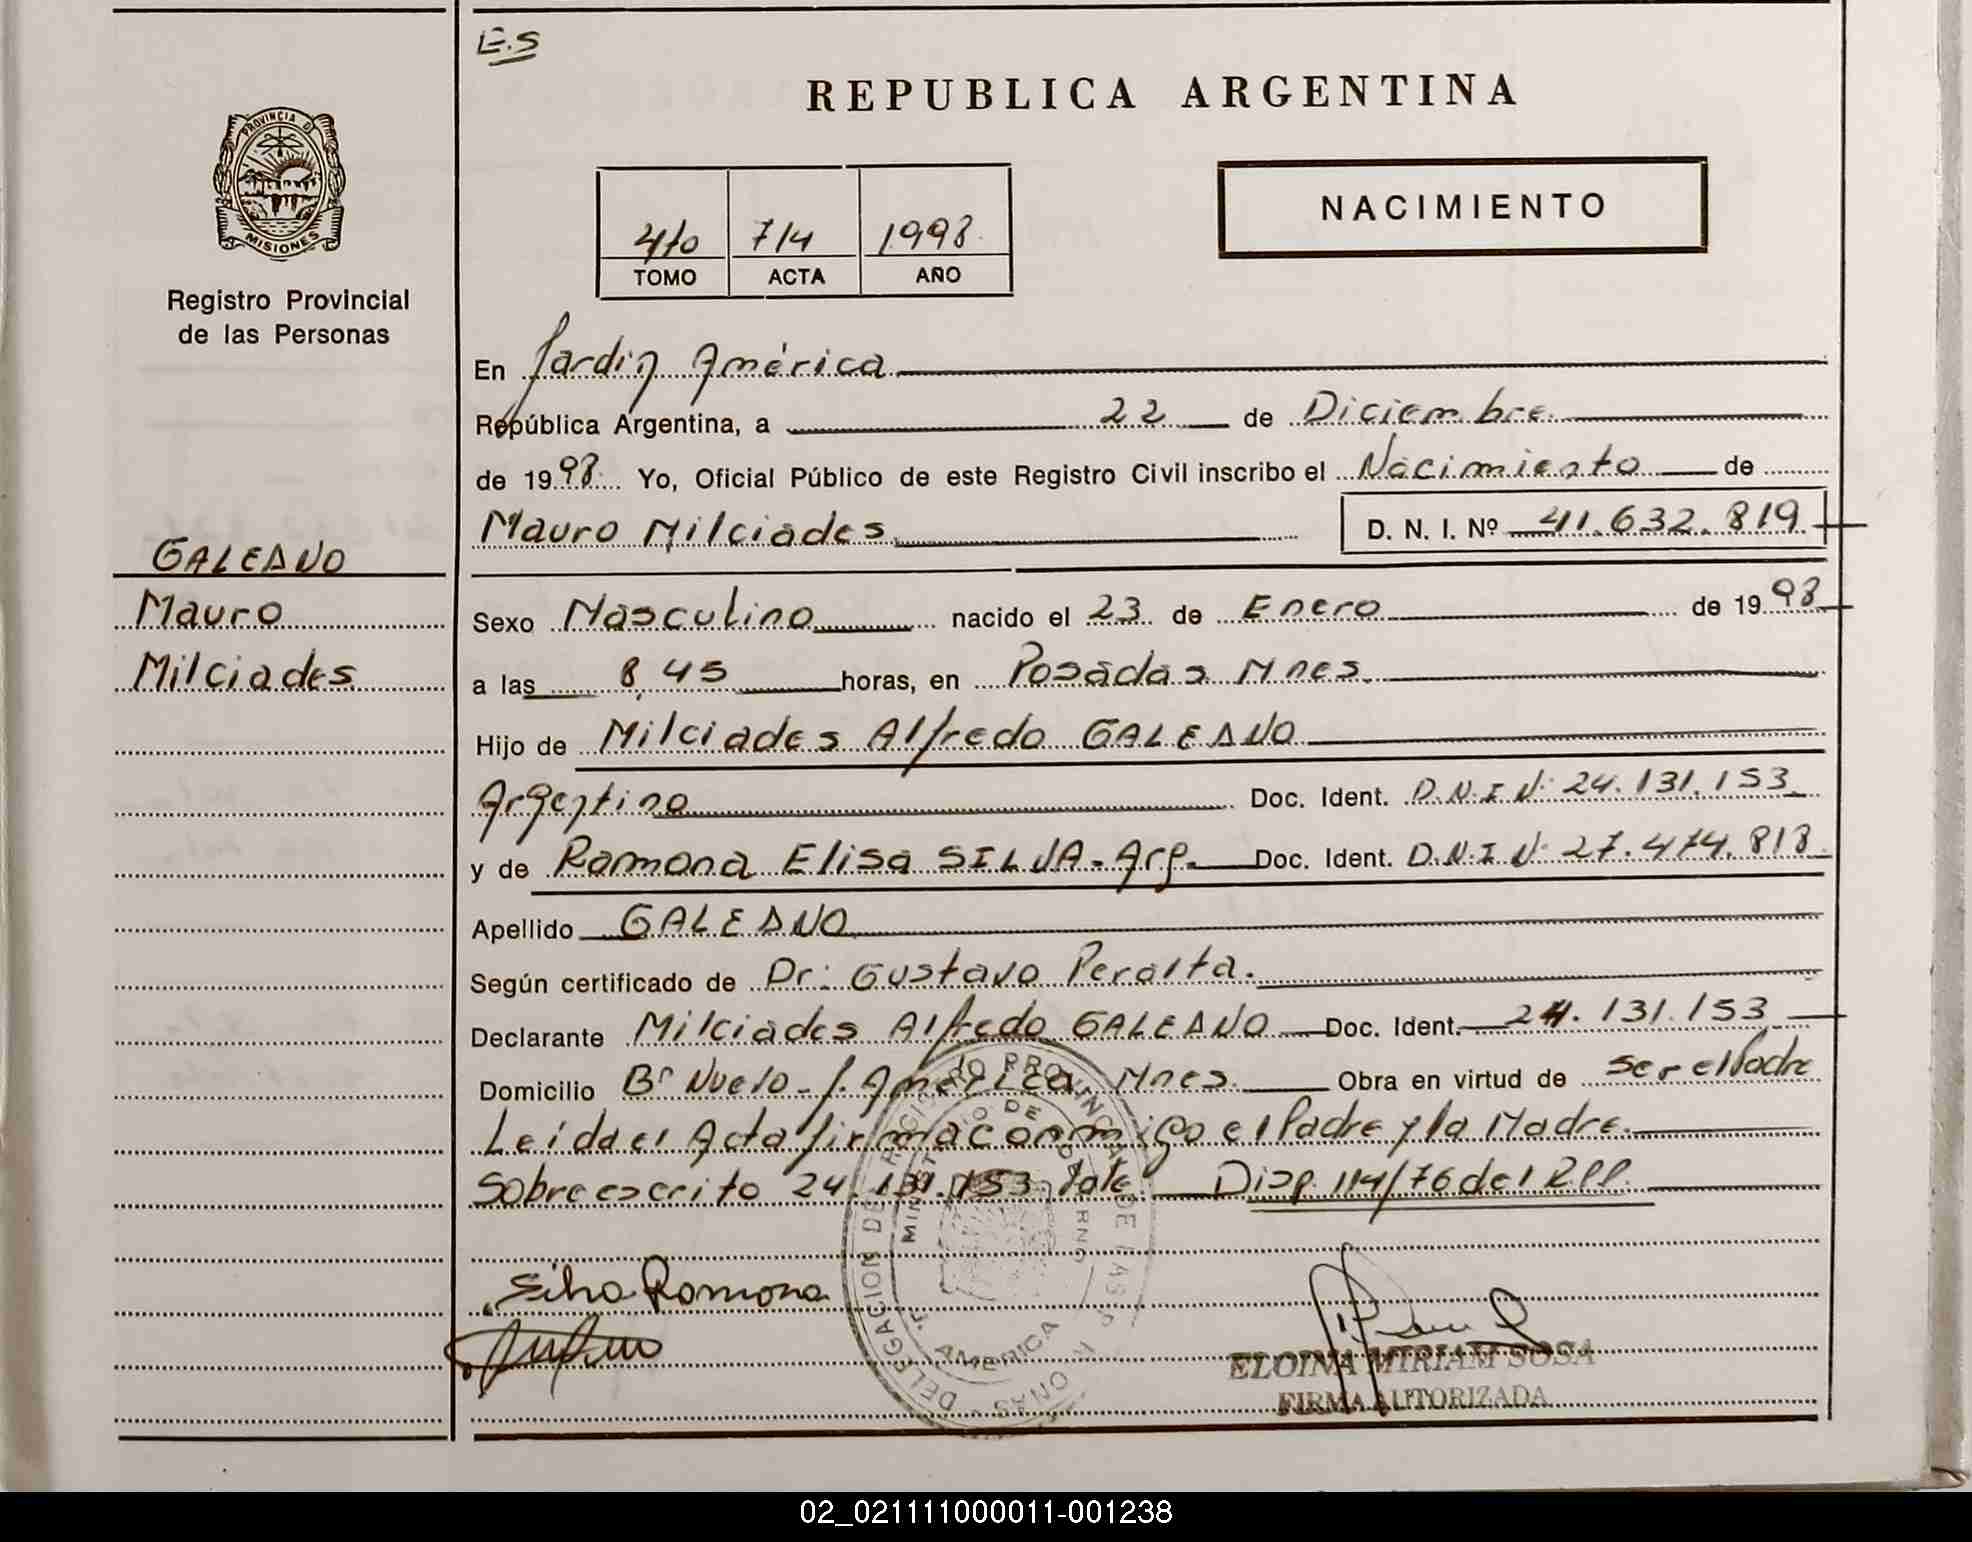 E.S
REPUBLICA ARGENTINA
PROVINCIA DE
MISIONES
Registro Provincial
de las Personas
4to 714 1998
TOMO ACTA AÑO
NACIMIENTO
En Jardin América
República Argentina, a 22 de Diciembre
de 1998 Yo, Oficial Público de este Registro Civil inscribo el Nacimiento de
Mauro Milciades D. N. I. Nº 41.632.819
GALEANO
Mauro
Milciades
Sexo Masculino nacido el 23 de Enero de 1998
a las 8,45 horas, en Posadas Mnes.
Hijo de Milciades Alfredo GALEANO
Argentino Doc. Ident. D.N.I Nº 24.131.153
y de Ramona Elisa SILVA - Arg. Doc. Ident. D.N.I Nº 27.474.818
Apellido GALEANO
Según certificado de Dr: Gustavo Peralta.
Declarante Milciades Alfredo GALEANO Doc. Ident. 24.131.153
Domicilio Bº Nuevo - J. América Mnes. Obra en virtud de ser el Padre
Leída el Acta firma conmigo el Padre y la Madre.
Sobreescrito 24.131.153 Vale. Disp. 114/76 del RPP.
Silva Ramona
ELOINA MIRIAM SOSA
FIRMA AUTORIZADA
02_021111000011-001238